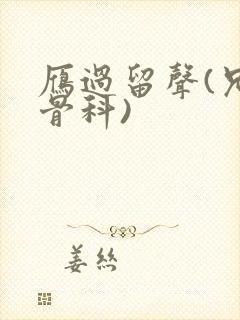 雁過留聲(兄
骨科)
姜絲